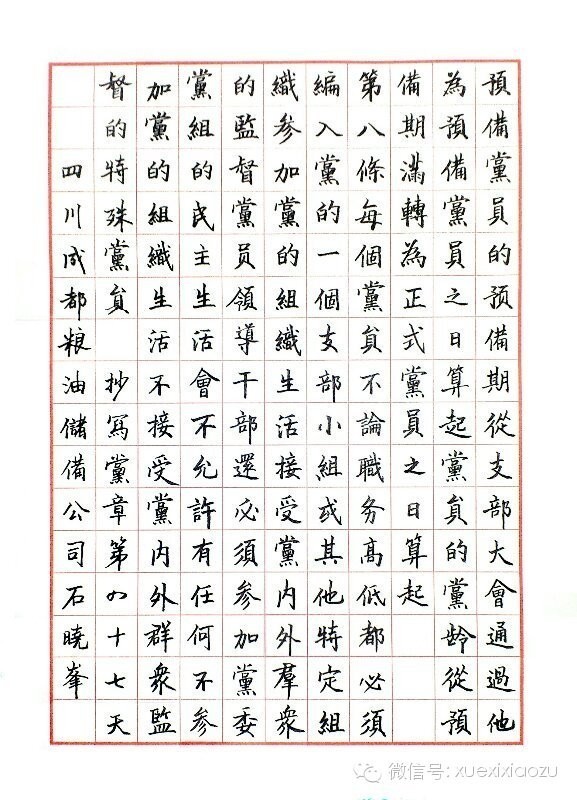 預備黨員的預備期從支部大會通過他
為預備黨員之日算起黨員的黨龄從預
備期滿轉為正式黨員之日算起
第八條每個黨員不論職务高低都必須
編入黨的一個支部小組或其他特定組
織参加黨的組織生活接受黨内外羣衆
的監督黨员領導干部還必須参加黨委
黨組的民主生活會不允許有任何不参
加黨的組織生活不接受黨内外群衆監
督的特殊黨員 抄寫黨章第四十七天
四川成都粮油儲備公司石曉峯
微信号: xuexixiaozu